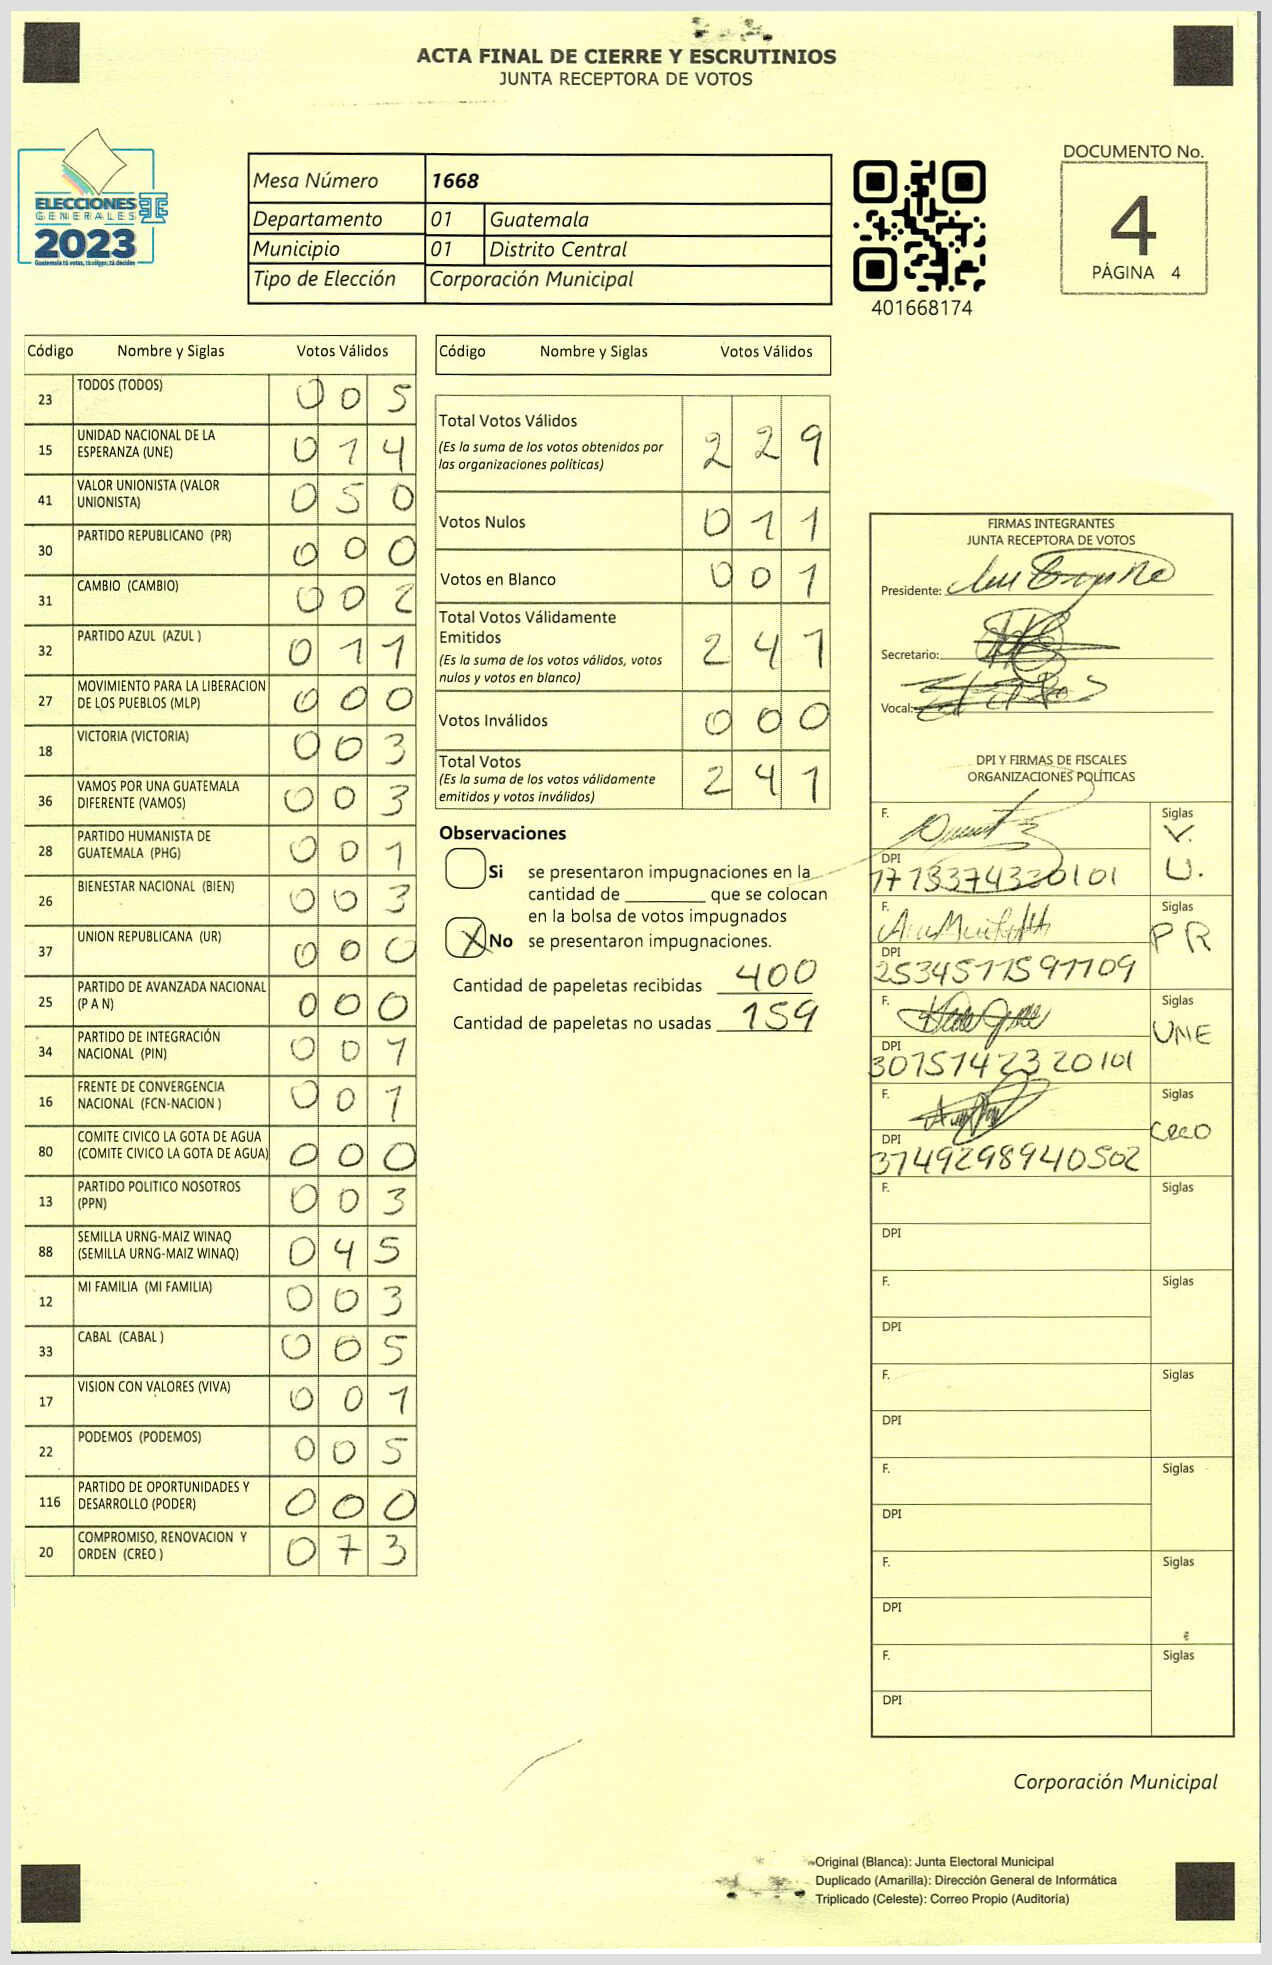 ACTA FINAL DE CIERRE Y ESCRUTINIOS
JUNTA RECEPTORA DE VOTOS
ELECCIONES
GENERALES
2023
Guatemala tú votas, tú eliges, tú decides
Mesa Número 1668
Departamento 01 Guatemala
Municipio 01 Distrito Central
Tipo de Elección Corporación Municipal
401668174
DOCUMENTO No.
4
PÁGINA 4
Código Nombre y Siglas Votos Válidos
23 TODOS (TODOS) 0 0 5
15 UNIDAD NACIONAL DE LA
ESPERANZA (UNE) 0 1 4
41 VALOR UNIONISTA (VALOR
UNIONISTA) 0 5 0
30 PARTIDO REPUBLICANO (PR) 0 0 0
31 CAMBIO (CAMBIO) 0 0 2
32 PARTIDO AZUL (AZUL ) 0 1 1
27 MOVIMIENTO PARA LA LIBERACION
DE LOS PUEBLOS (MLP) 0 0 0
18 VICTORIA (VICTORIA) 0 0 3
36 VAMOS POR UNA GUATEMALA
DIFERENTE (VAMOS) 0 0 3
28 PARTIDO HUMANISTA DE
GUATEMALA (PHG) 0 0 1
26 BIENESTAR NACIONAL (BIEN) 0 0 3
37 UNION REPUBLICANA (UR) 0 0 0
25 PARTIDO DE AVANZADA NACIONAL
(P A N) 0 0 0
34 PARTIDO DE INTEGRACIÓN
NACIONAL (PIN) 0 0 1
16 FRENTE DE CONVERGENCIA
NACIONAL (FCN-NACION ) 0 0 1
80 COMITE CIVICO LA GOTA DE AGUA
(COMITE CIVICO LA GOTA DE AGUA) 0 0 0
13 PARTIDO POLITICO NOSOTROS
(PPN) 0 0 3
88 SEMILLA URNG-MAIZ WINAQ
(SEMILLA URNG-MAIZ WINAQ) 0 4 5
12 MI FAMILIA (MI FAMILIA) 0 0 3
33 CABAL (CABAL ) 0 0 5
17 VISION CON VALORES (VIVA) 0 0 1
22 PODEMOS (PODEMOS) 0 0 5
116 PARTIDO DE OPORTUNIDADES Y
DESARROLLO (PODER) 0 0 0
20 COMPROMISO, RENOVACION Y
ORDEN (CREO ) 0 7 3
Código Nombre y Siglas Votos Válidos
Total Votos Válidos 2 2 9
(Es la suma de los votos obtenidos por
las organizaciones políticas)
Votos Nulos 0 1 1
Votos en Blanco 0 0 1
Total Votos Válidamente
Emitidos 2 4 1
(Es la suma de los votos válidos, votos
nulos y votos en blanco)
Votos Inválidos 0 0 0
Total Votos 2 4 1
(Es la suma de los votos válidamente
emitidos y votos inválidos)
Observaciones
Si se presentaron impugnaciones en la
cantidad de ________ que se colocan
en la bolsa de votos impugnados
X No se presentaron impugnaciones.
Cantidad de papeletas recibidas 400
Cantidad de papeletas no usadas 159
FIRMAS INTEGRANTES
JUNTA RECEPTORA DE VOTOS
Presidente:
Secretario:
Vocal:
DPI Y FIRMAS DE FISCALES
ORGANIZACIONES POLÍTICAS
F. Siglas
V.
U.
DPI
1773374330101
F. Siglas
PR
DPI
2534511591109
F. Siglas
UNE
DPI
3075142320101
F. Siglas
CREO
DPI
3749298940502
F. Siglas
DPI
F. Siglas
DPI
F. Siglas
DPI
F. Siglas
DPI
F. Siglas
DPI
F. Siglas
DPI
Corporación Municipal
Original (Blanca): Junta Electoral Municipal
Duplicado (Amarilla): Dirección General de Informática
Triplicado (Celeste): Correo Propio (Auditoría)